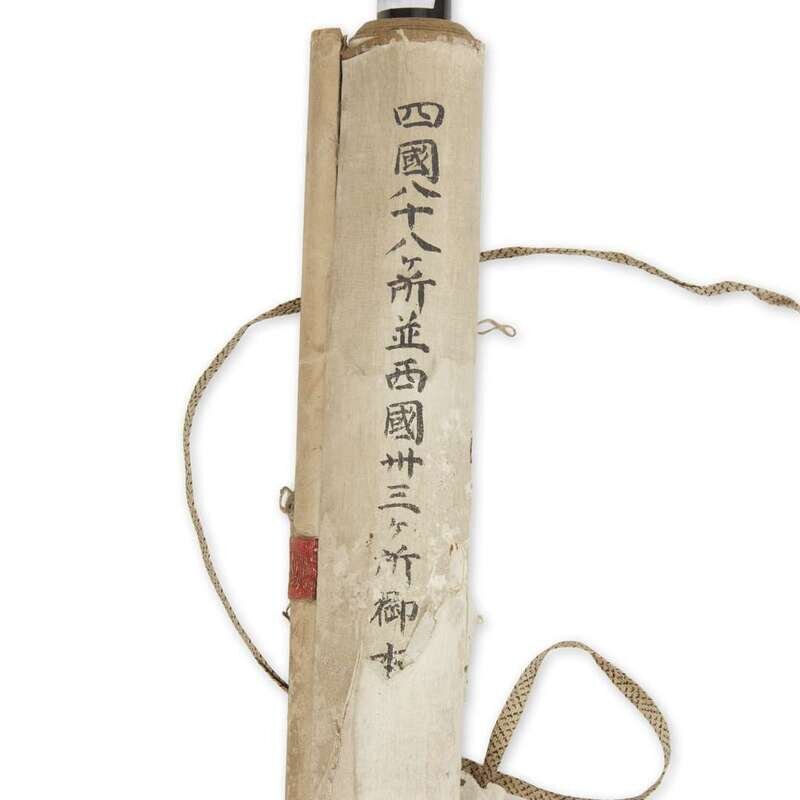 四國八十八ヶ所並西國卅三ヶ所御本